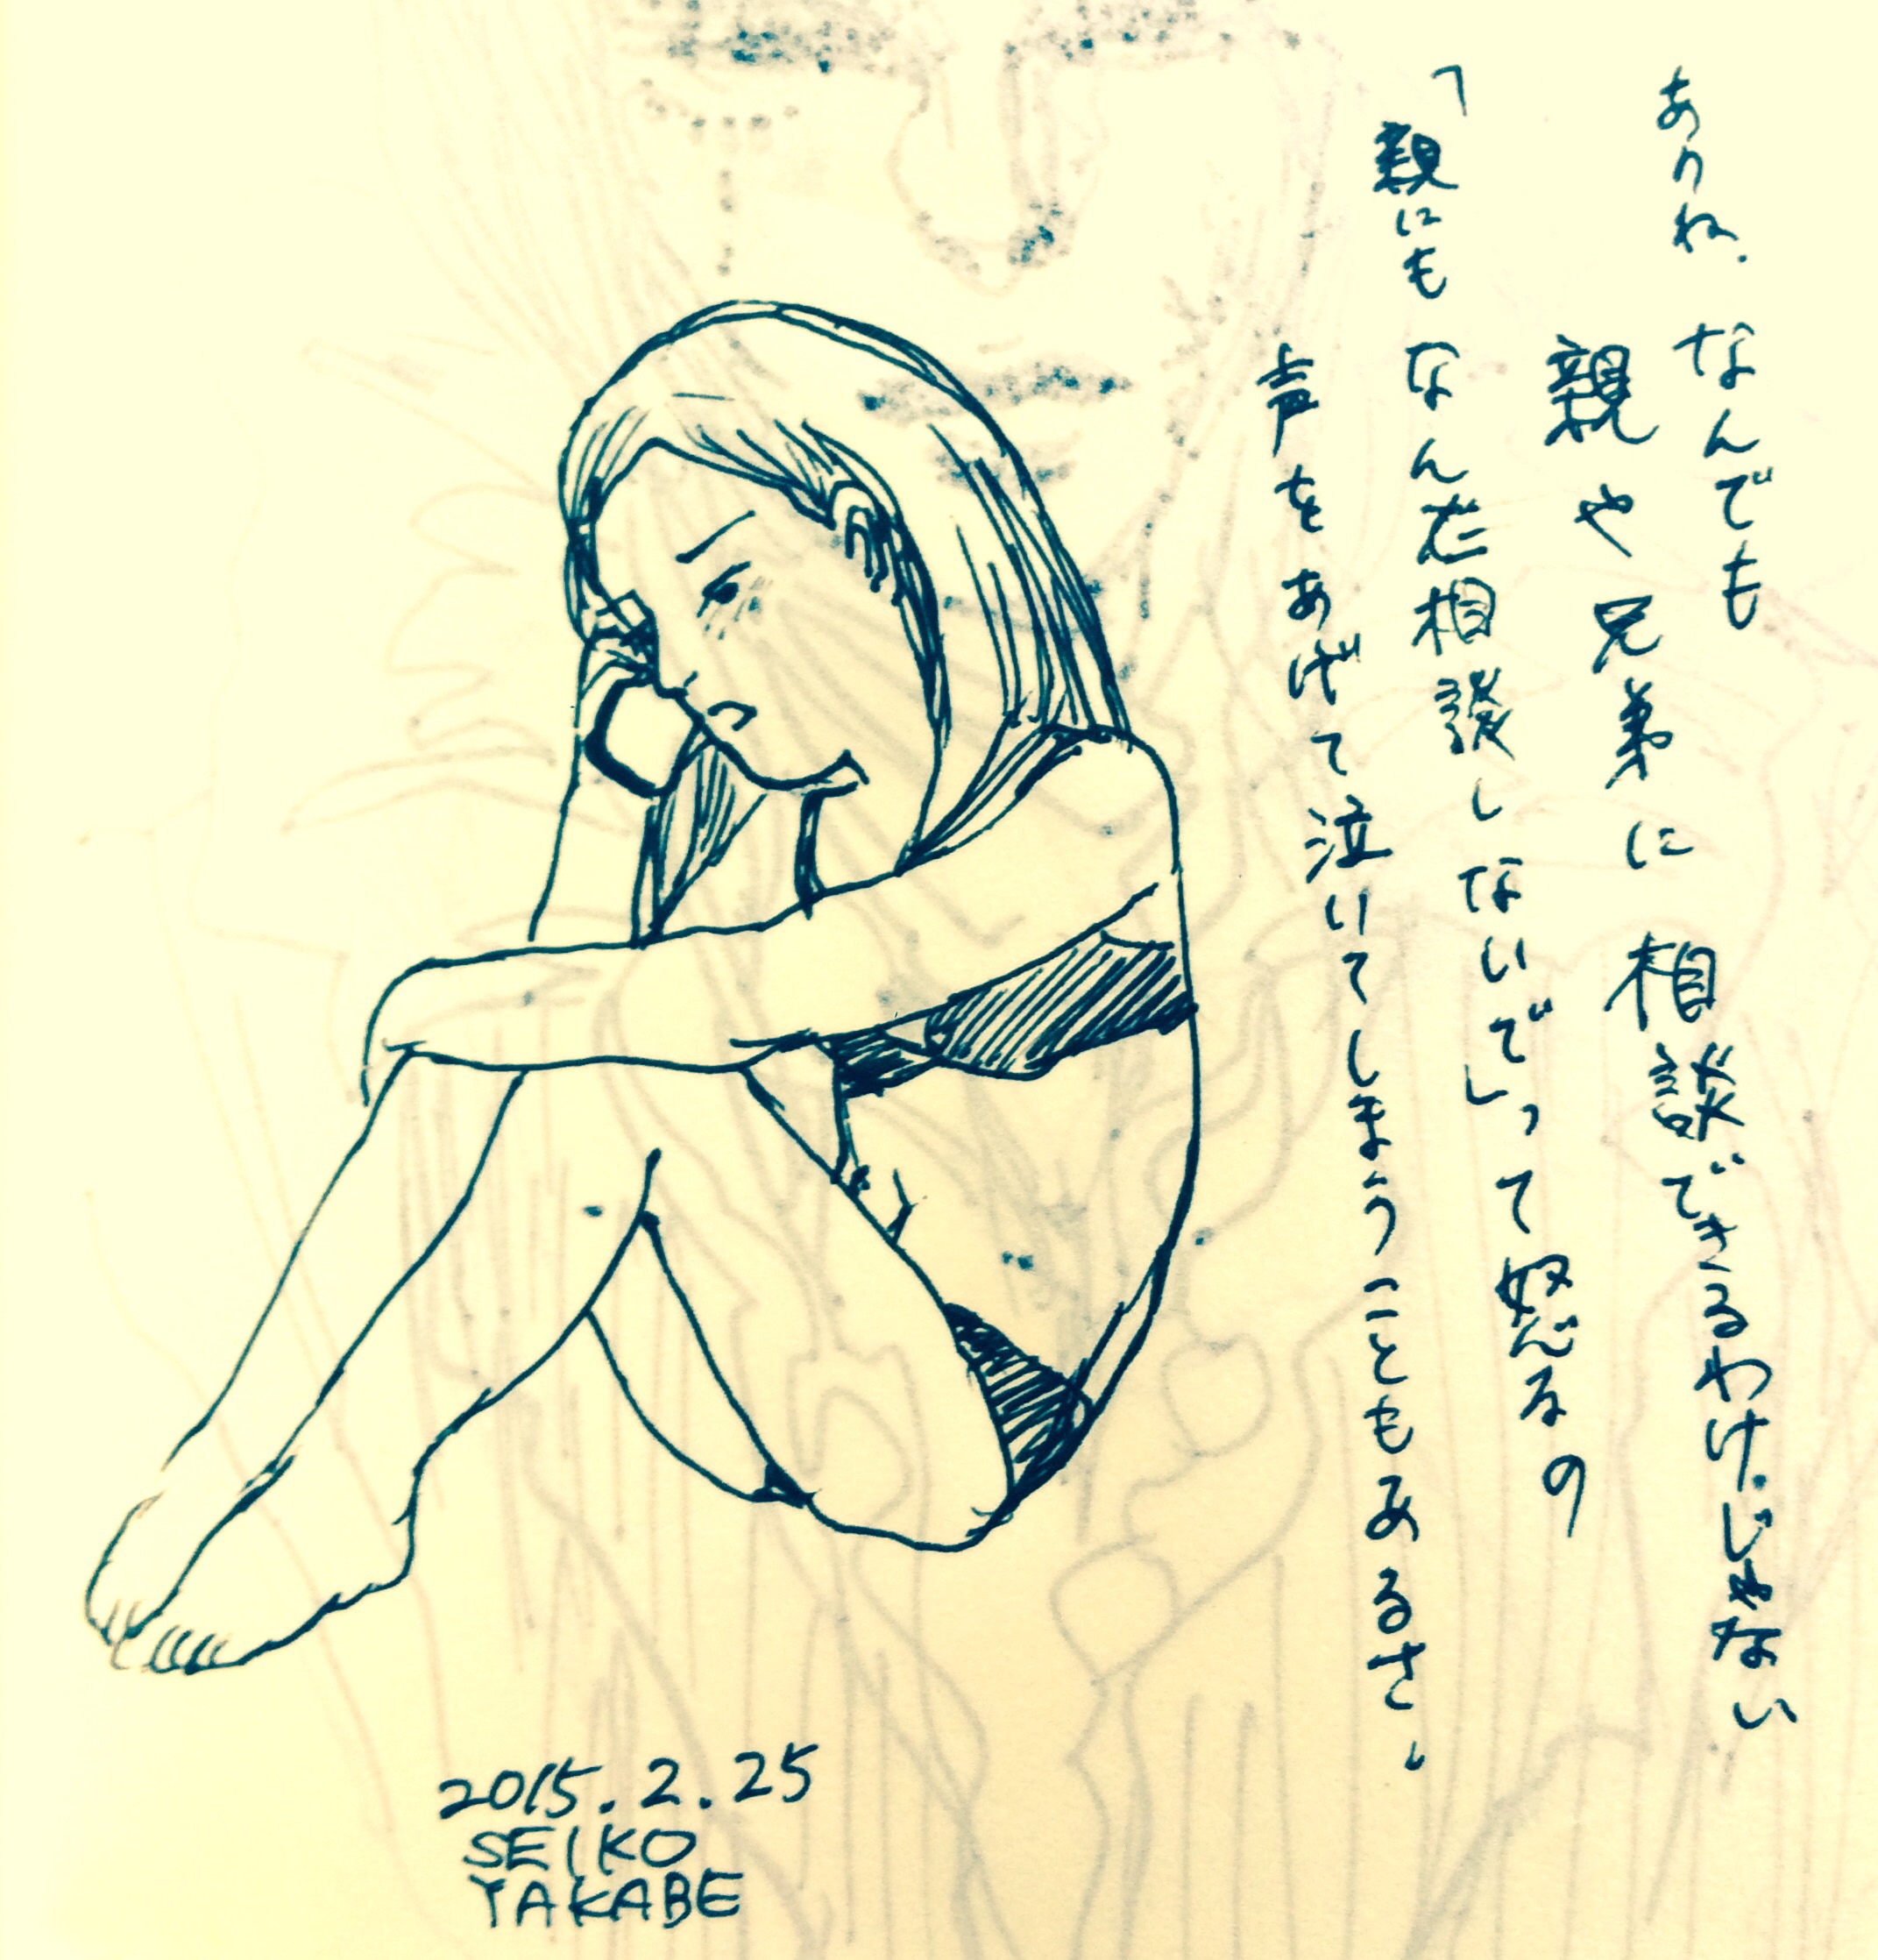 あのね、なんでも
親や兄弟に相談できるわけじゃない
「親にもなんだ相談しないで」って怒るの
声をあげて泣いてしまうこともあるさ。
2015.2.25
SEIKO
TAKABE